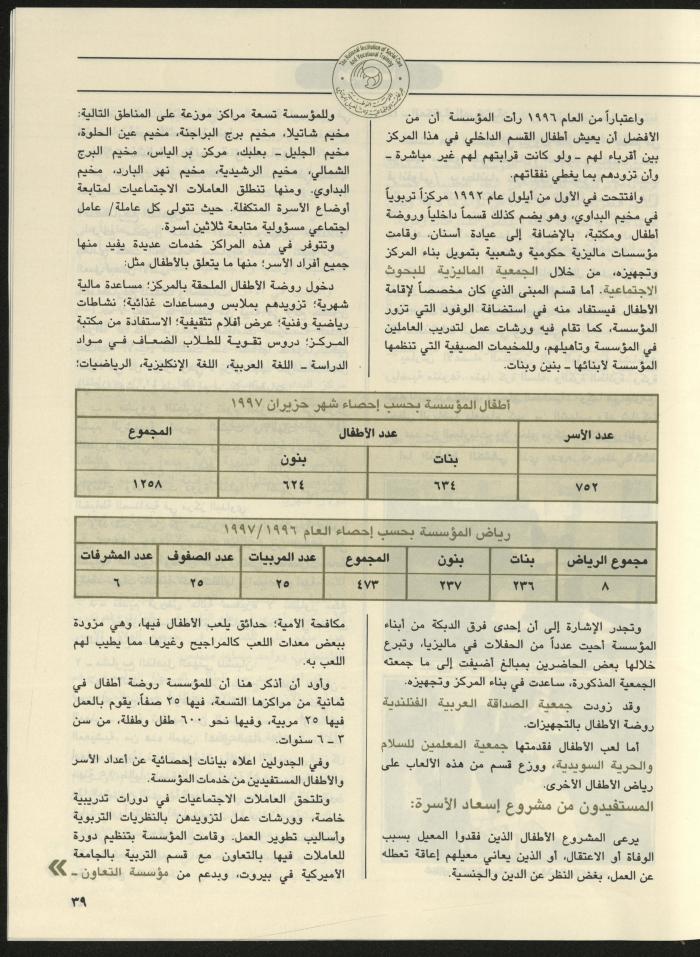 The National Institution of Social Care
And Vocational Training
واعتباراً من العام ١٩٩٦ رأت المؤسسة أن من
الأفضل أن يعيش أطفال القسم الداخلي في هذا المركز
بين أقرباء لهم ــ ولو كانت قرابتهم لهم غير مباشرة ــ
وأن تزودهم بما يغطي نفقاتهم.
وافتتحت في الأول من أيلول عام ١٩٩٢ مركزاً تربوياً
في مخيم البداوي، وهو يضم كذلك قسماً داخلياً وروضة
أطفال ومكتبة، بالإضافة إلى عيادة أسنان. وقامت
مؤسسات ماليزية حكومية وشعبية بتمويل بناء المركز
وتجهيزه، من خلال الجمعية الماليزية للبحوث
الاجتماعية. أما قسم المبنى الذي كان مخصصاً لإقامة
الأطفال فيستفاد منه في استضافة الوفود التي تزور
المؤسسة، كما تقام فيه ورشات عمل لتدريب العاملين
في المؤسسة وتأهيلهم، وللمخيمات الصيفية التي تنظمها
المؤسسة لأبنائها ــ بنين وبنات.
وللمؤسسة تسعة مراكز موزعة على المناطق التالية:
مخيم شاتيلا، مخيم برج البراجنة، مخيم عين الحلوة،
مخيم الجليل ــ بعلبك، مركز بر الياس، مخيم البرج
الشمالي، مخيم الرشيدية، مخيم نهر البارد، مخيم
البداوي. ومنها تنطلق العاملات الاجتماعيات لمتابعة
أوضاع الأسرة المتكفلة. حيث تتولى كل عاملة/ عامل
اجتماعي مسؤولية متابعة ثلاثين أسرة.
وتتوفر في هذه المراكز خدمات عديدة يفيد منها
جميع أفراد الأسر؛ منها ما يتعلق بالأطفال مثل:
دخول روضة الأطفال الملحقة بالمركز؛ مساعدة مالية
شهرية؛ تزويدهم بملابس ومساعدات غذائية؛ نشاطات
رياضية وفنية؛ عرض أفلام تثقيفية؛ الاستفادة من مكتبة
المركز؛ دروس تقوية للطلاب الضعاف في مواد
الدراسة ــ اللغة العربية، اللغة الإنكليزية، الرياضيات؛
أطفال المؤسسة بحسب إحصاء شهر حزيران ١٩٩٧
عدد الأسر عدد الأطفال المجموع
بنات بنون
٧٥٢ ٦٣٤ ٦٢٤ ١٢٥٨
رياض المؤسسة بحسب إحصاء العام ١٩٩٧/١٩٩٦
مجموع الرياض بنات بنون المجموع عدد المربيات عدد الصفوف عدد المشرفات
٨ ٢٣٦ ٢٣٧ ٤٧٣ ٢٥ ٢٥ ٦
وتجدر الإشارة إلى أن إحدى فرق الدبكة من أبناء
المؤسسة أحيت عدداً من الحفلات في ماليزيا، وتبرع
خلالها بعض الحاضرين بمبالغ أضيفت إلى ما جمعته
الجمعية المذكورة، ساعدت في بناء المركز وتجهيزه.
وقد زودت جمعية الصداقة العربية الفنلندية
روضة الأطفال بالتجهيزات.
أما لعب الأطفال فقدمتها جمعية المعلمين للسلام
والحرية السويدية، ووزع قسم من هذه الألعاب على
رياض الأطفال الأخرى.
المستفيدون من مشروع إسعاد الأسرة:
يرعى المشروع الأطفال الذين فقدوا المعيل بسبب
الوفاة أو الاعتقال، أو الذين يعاني معيلهم إعاقة تعطله
عن العمل، بغض النظر عن الدين والجنسية.
مكافحة الأمية؛ حدائق يلعب الأطفال فيها، وهي مزودة
ببعض معدات اللعب كالمراجيح وغيرها مما يطيب لهم
اللعب به.
وأود أن أذكر هنا أن للمؤسسة روضة أطفال في
ثمانية من مراكزها التسعة، فيها ٢٥ صفاً، يقوم بالعمل
فيها ٢٥ مربية، وفيها نحو ٦٠٠ طفل وطفلة، من سن
٣ ــ ٦ سنوات.
وفي الجدولين اعلاه بيانات إحصائية عن أعداد الأسر
والأطفال المستفيدين من خدمات المؤسسة.
وتلتحق العاملات الاجتماعيات في دورات تدريبية
خاصة، وورشات عمل لتزويدهن بالنظريات التربوية
وأساليب تطوير العمل. وقامت المؤسسة بتنظيم دورة
للعاملات فيها بالتعاون مع قسم التربية بالجامعة
الأميركية في بيروت، وبدعم من مؤسسة التعاون ــ
٣٩